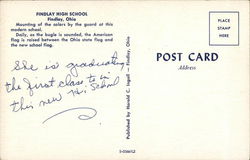 FINDLAY HIGH SCHOOL
Findlay, Ohio
Mounting of the colors by the guard at this
modern school.
Daily, as the bugle is sounded, the American
flag is raised between the Ohio state flag and
the new school flag.
She is graduating
the first class to in
this new Hi School
POST CARD
Address
Published by Harold C. Ingall